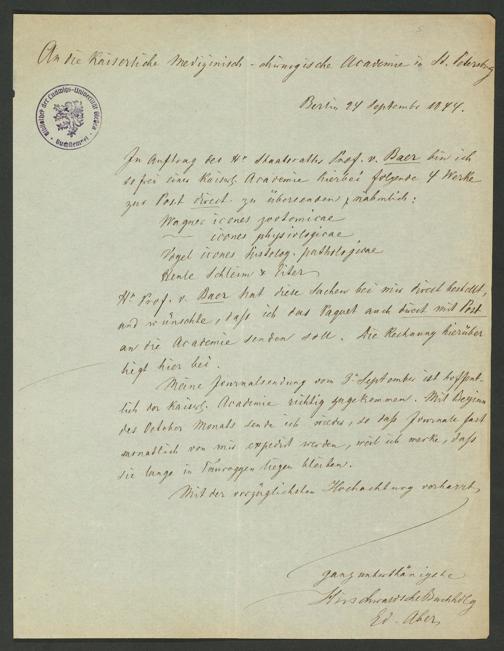 An die Kaiserliche Medizinisch-chirurgische Academie in St. Petersburg
Berlin 24 September 1844.
Bibliothek der Ludwigs-Universität Giessen
Im Auftrag des Hn Staatsraths Prof. v. Baer bin ich
so frei einer Kaiserl. Academie hierbei folgende 4 Werke
zur Post direct zu übersenden, nähmlich:
Wagner icones zootomicae
— icones physiologicae
Vogel icones histolog. pathologicae
Henle Schleim & Eiter
Hn Prof. v. Baer hat diese Sachen bei mir direct bestellt,
und wünschte, daß ich das Paquet auch direct mit Post
an die Academie senden soll. Die Rechnung hierüber
liegt hier bei.
Meine Journalsendung vom 3n September ist hoffent-
lich der Kaiserl. Academie richtig zugekommen. Mit Beginn
des October Monats sende ich wieder, so daß Journale fast
monatlich von mir expedirt werden, weil ich merke, daß
sie lange in Tauroggen liegen bleiben.
Mit der vorzüglichsten Hochachtung verharrt,
ganz unterthänigste
Hirschwaldsche Buchhdlg
Ed. Aber